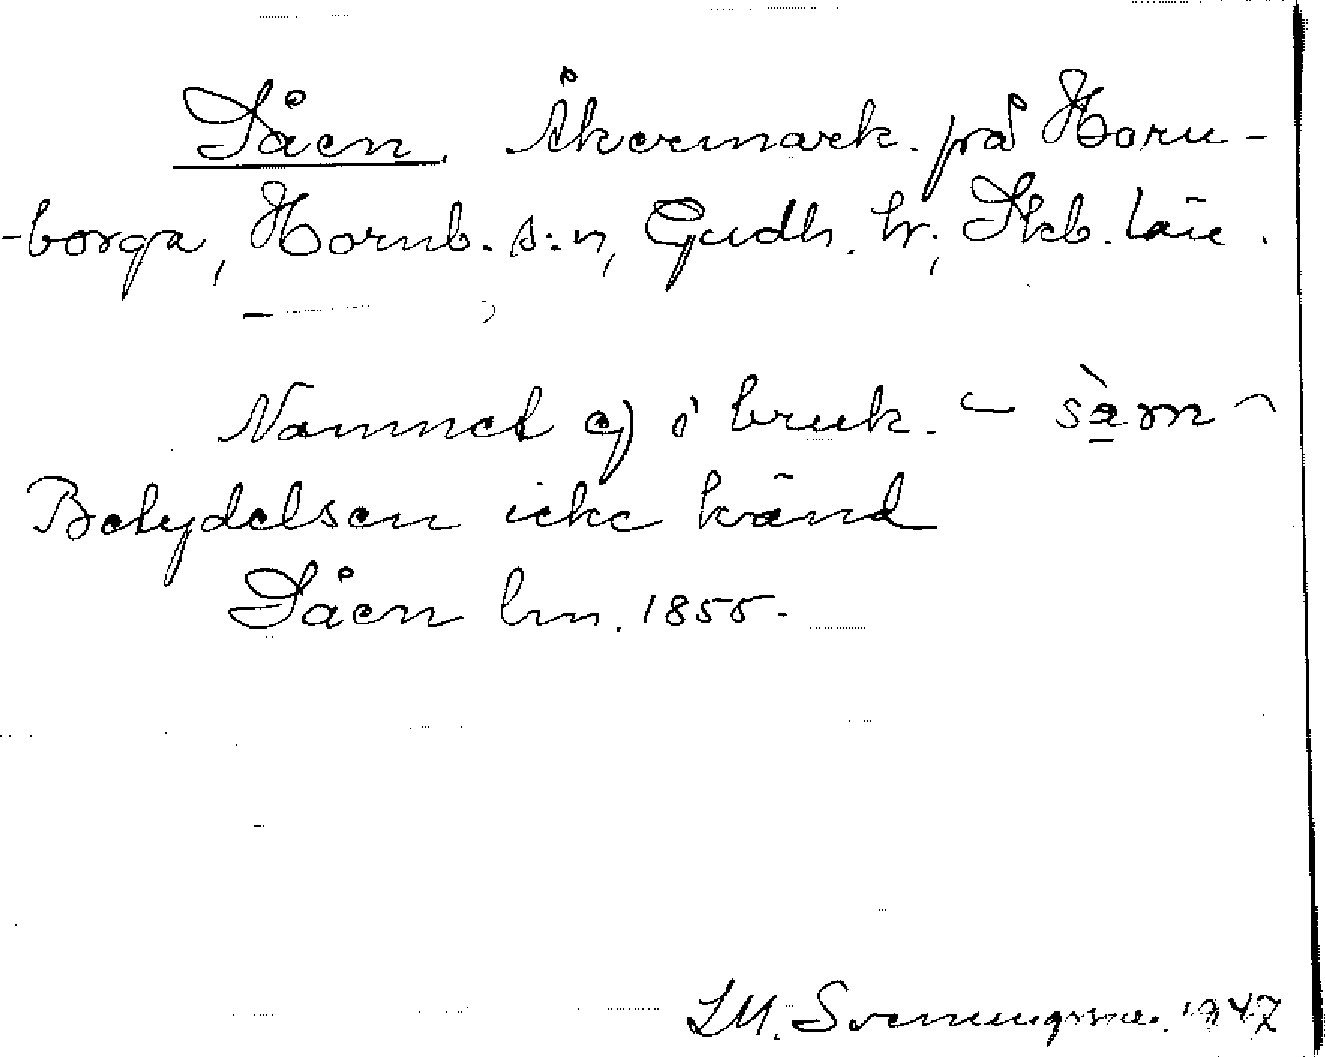 Såen. Åkermark. på Horn-
-borga, Hornb. s:n, Gudh. hr; Skb. län.
Namnet ej i bruk.
Betydelsen icke känd
Såen lm. 1855.
S.M. Svenungsson. 1947